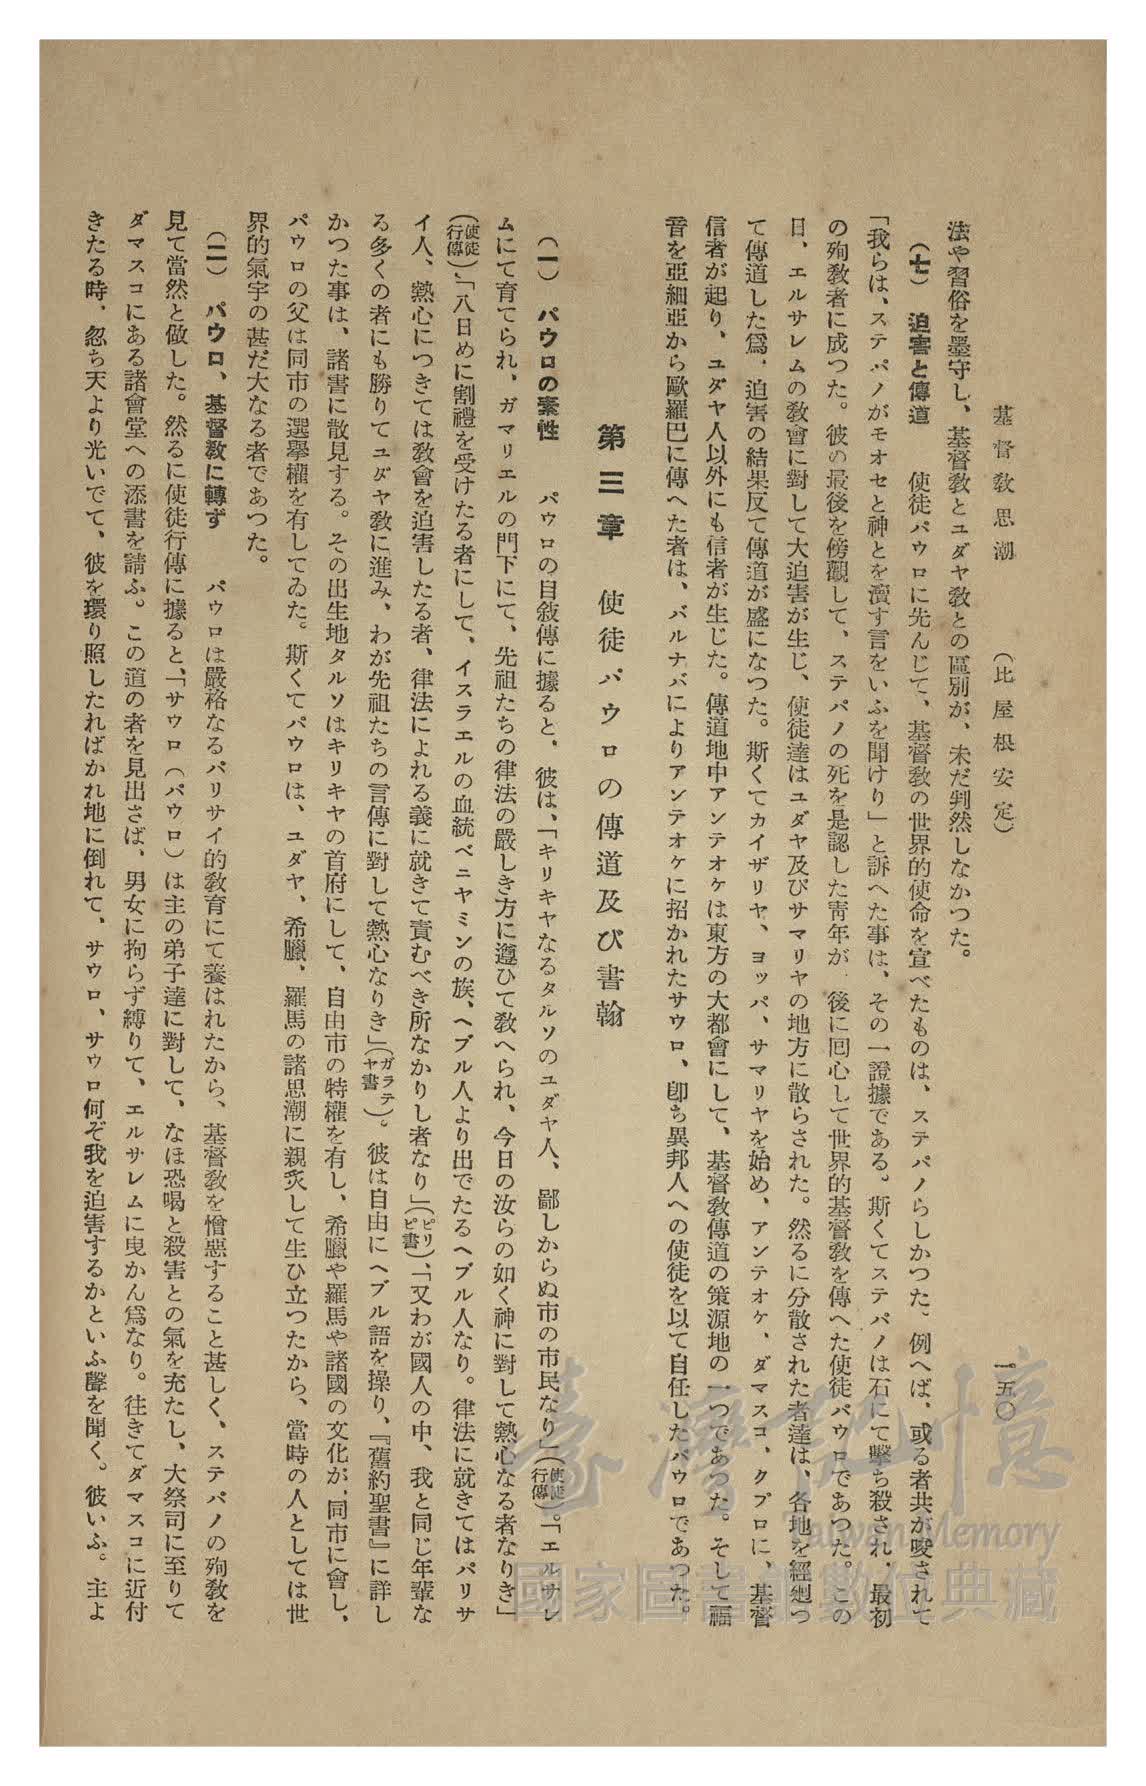 基督教思潮　(比屋根安定)　一五〇
法や習俗を墨守し、基督教とユダヤ教との區別が、未だ判然しなかつた。
(七)　迫害と傳道　使徒パウロに先んじて、基督教の世界的使命を宣べたものは、ステパノらしかつた。例へば、或る者共が唆されて
「我らは、ステパノがモオセと神とを瀆す言をいふを聞けり」と訴へた事は、その一證據である。斯くてステパノは石にて擊ち殺され、最初
の殉教者に成つた。彼の最後を傍觀して、ステパノの死を是認した靑年が、後に囘心して世界的基督教を傳へた使徒パウロであつた。この
日、エルサレムの教會に對して大迫害が生じ、使徒達はユダヤ及びサマリヤの地方に散らされた。然るに分散された者達は、各地を經廻つ
て傳道した爲、迫害の結果反て傳道が盛になつた。斯くてカイザリヤ、ヨッパ、サマリヤを始め、アンテオケ、ダマスコ、クプロに、基督
信者が起り、ユダヤ人以外にも信者が生じた。傳道地中アンテオケは東方の大都會にして、基督教傳道の策源地の一つであつた。そして福
音を亞細亞から歐羅巴に傳へた者は、バルナバによりアンテオケに招かれたサウロ、卽ち異邦人への使徒を以て自任したパウロであつた。
第三章　使徒パウロの傳道及び書翰
(一)　パウロの素性　パウロの自敍傳に據ると、彼は、「キリキヤなるタルソのユダヤ人、鄙しからぬ市の市民なり」(使徒行傳)。「エルサレ
ムにて育てられ、ガマリエルの門下にて、先祖たちの律法の嚴しき方に遵ひて教へられ、今日の汝らの如く神に對して熱心なる者なりき」
(使徒行傳)、「八日めに割禮を受けたる者にして、イスラエルの血統ベニヤミンの族、ヘブル人より出でたるヘブル人なり。律法に就きてはパリサ
イ人、熱心につきては教會を迫害したる者、律法によれる義に就きて責むべき所なかりし者なり」(ピリピ書)、「又わが國人の中、我と同じ年輩な
る多くの者にも勝りてユダヤ教に進み、わが先祖たちの言傳に對して熱心なりき」(ガラテヤ書)。彼は自由にヘブル語を操り、『舊約聖書』に詳し
かつた事は、諸書に散見する。その出生地タルソはキリキヤの首府にして、自由市の特權を有し、希臘や羅馬や諸國の文化が、同市に會し、
パウロの父は同市の選擧權を有してゐた。斯くてパウロは、ユダヤ、希臘、羅馬の諸思潮に親炙して生ひ立つたから、當時の人としては世
界的氣宇の甚だ大なる者であつた。
(二)　パウロ、基督教に轉ず　パウロは嚴格なるパリサイ的敎育にて養はれたから、基督教を憎惡すること甚しく、ステパノの殉教を
見て當然と做した。然るに使徒行傳に據ると、「サウロ(パウロ)は主の弟子達に對して、なほ恐喝と殺害との氣を充たし、大祭司に至りて
ダマスコにある諸會堂への添書を請ふ。この道の者を見出さば、男女に拘らず縛りて、エルサレムに曳かん爲なり。往きてダマスコに近付
きたる時、忽ち天より光いでて、彼を環り照したればかれ地に倒れて、サウロ、サウロ何ぞ我を迫害するかといふ聲を聞く。彼いふ。主よ
臺灣記憶
Taiwan Memory
國家圖書館數位典藏